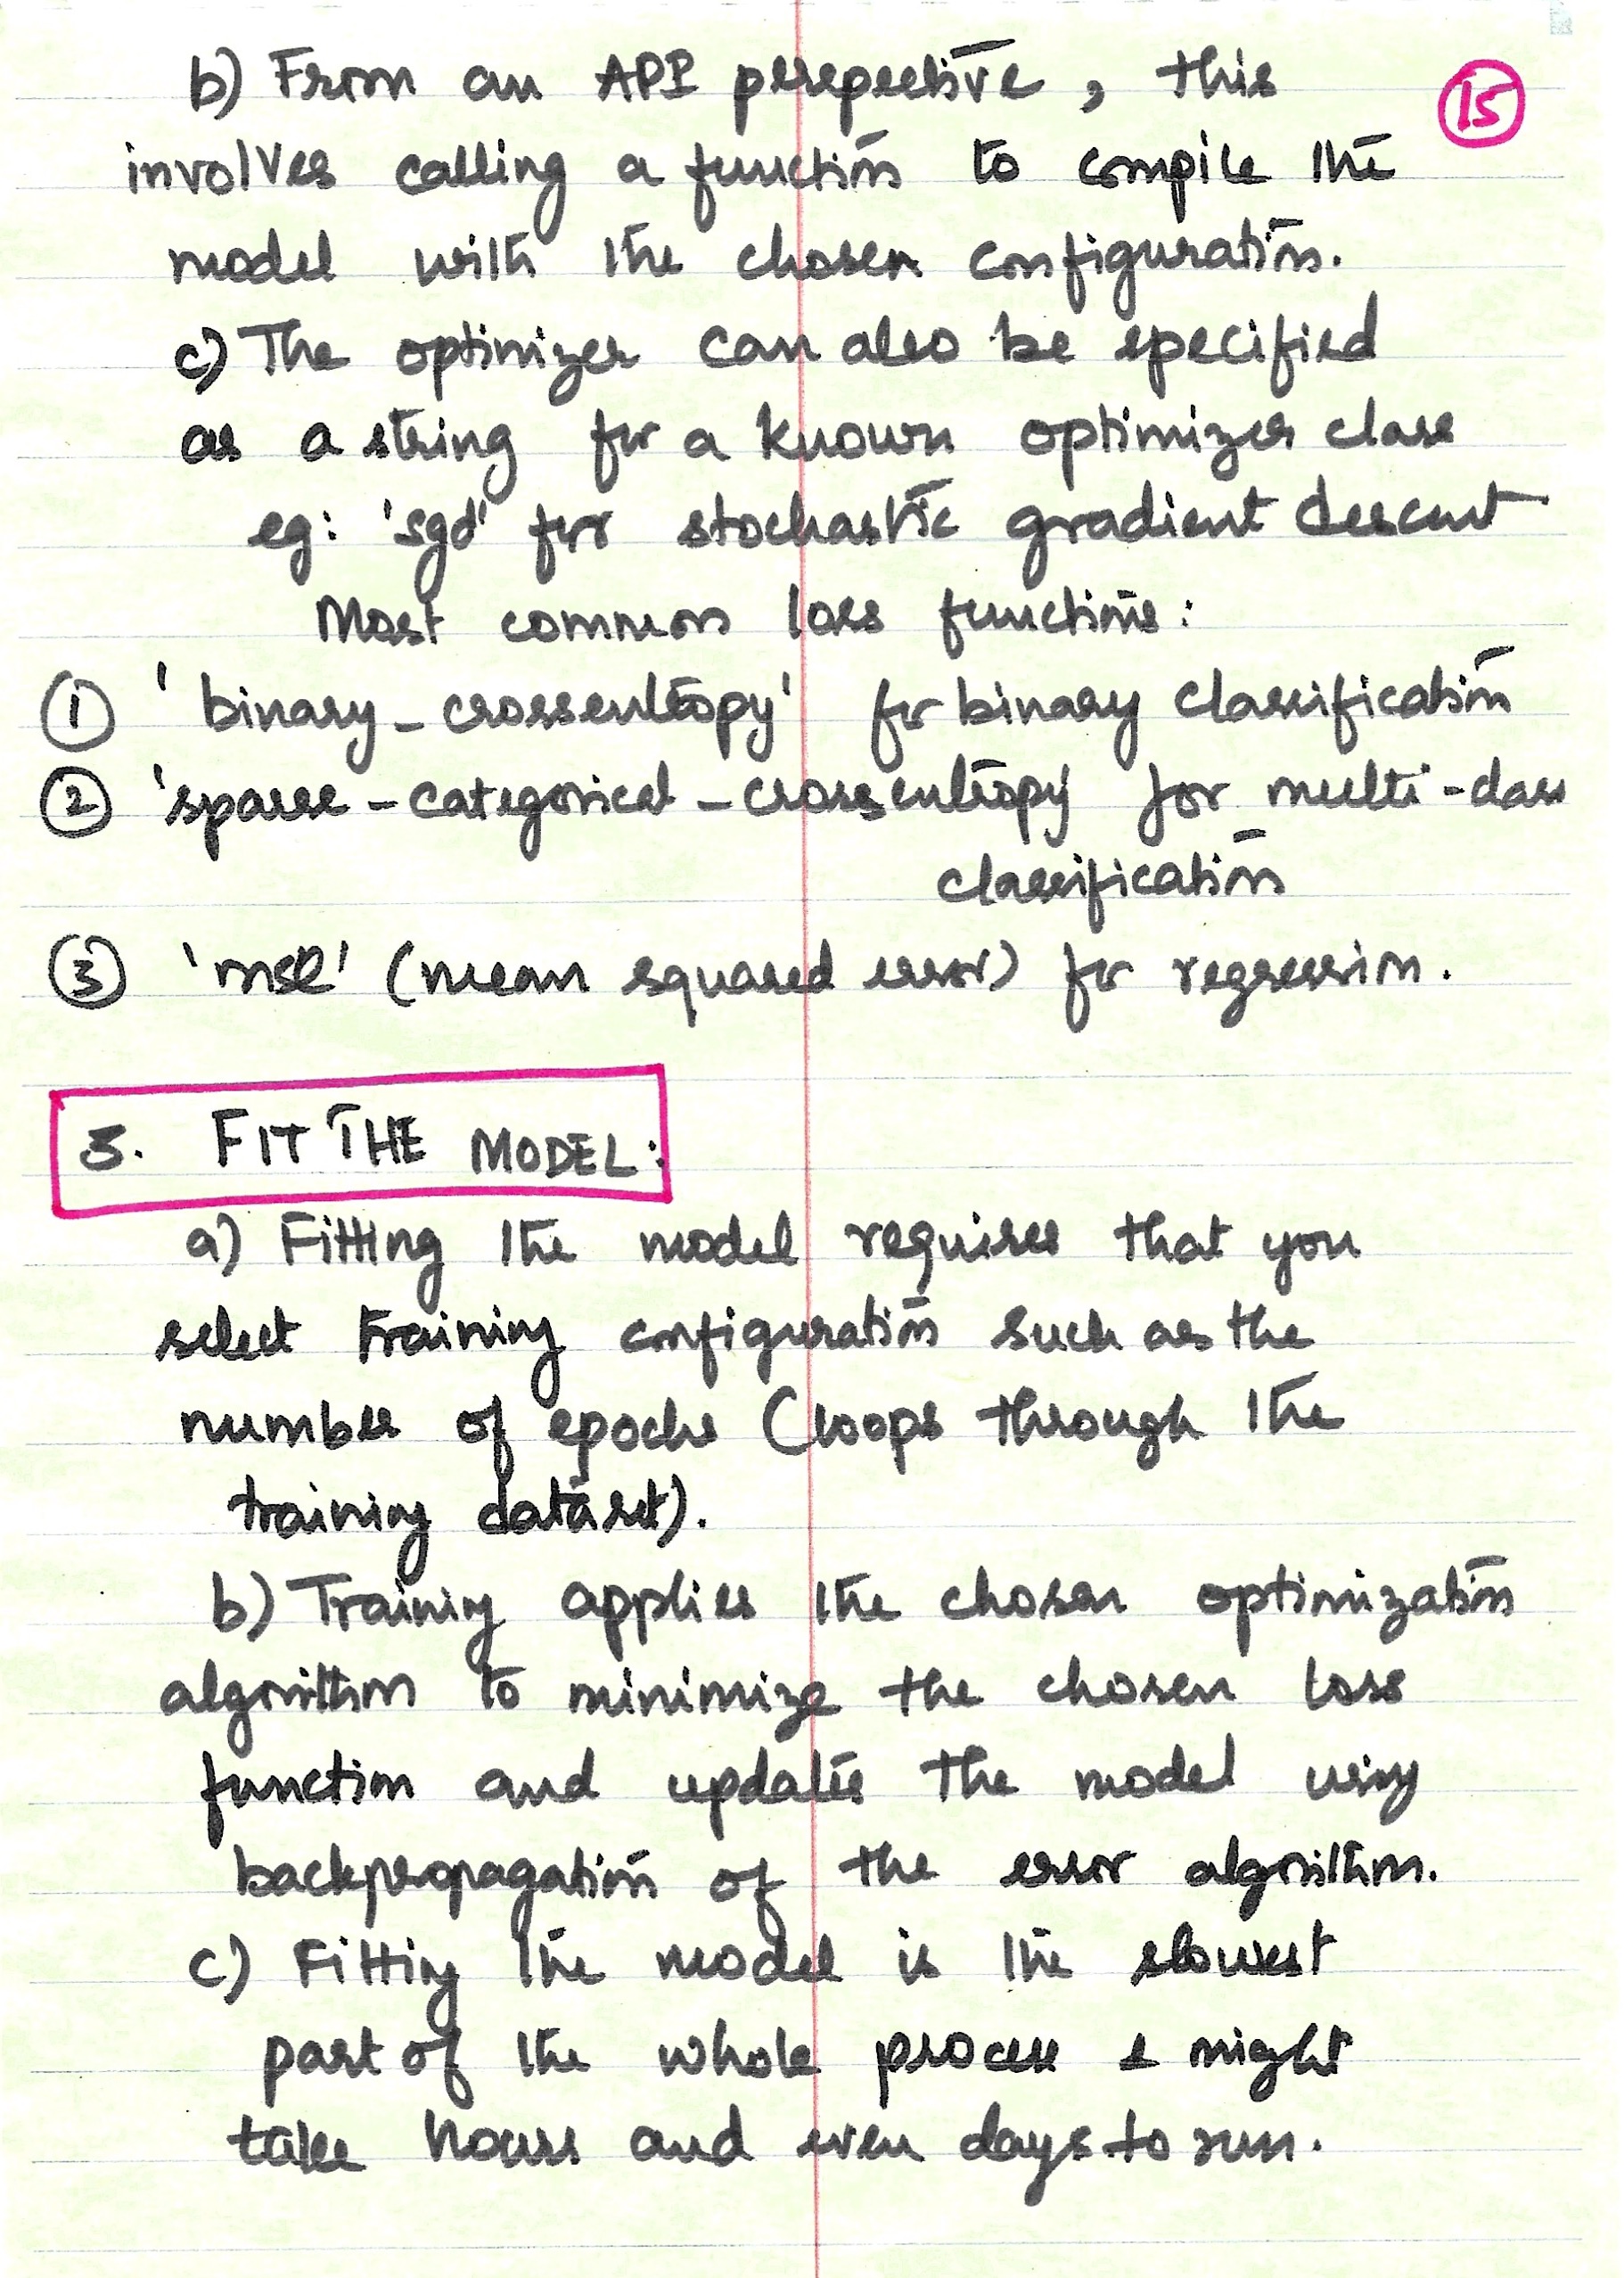 b) From an API perspective, this
15
involves calling a function to compile the
model with the chosen configuration.
c) The optimizer can also be specified
as a string for a known optimizer class
eg: 'sgd' for stochastic gradient descent
Most common loss functions:
1 'binary_crossentropy' for binary classification
2 'sparse_categorical_crossentropy for multi-class
classification
3 'mse' (mean squared error) for regression.
3. FIT THE MODEL:
a) Fitting the model requires that you
select training configuration such as the
number of epochs (loops through the
training dataset).
b) Training applies the chosen optimization
algorithm to minimize the chosen loss
function and updates the model using
backpropagation of the error algorithm.
c) Fitting the model is the slowest
part of the whole process & might
take hours and even days to run.